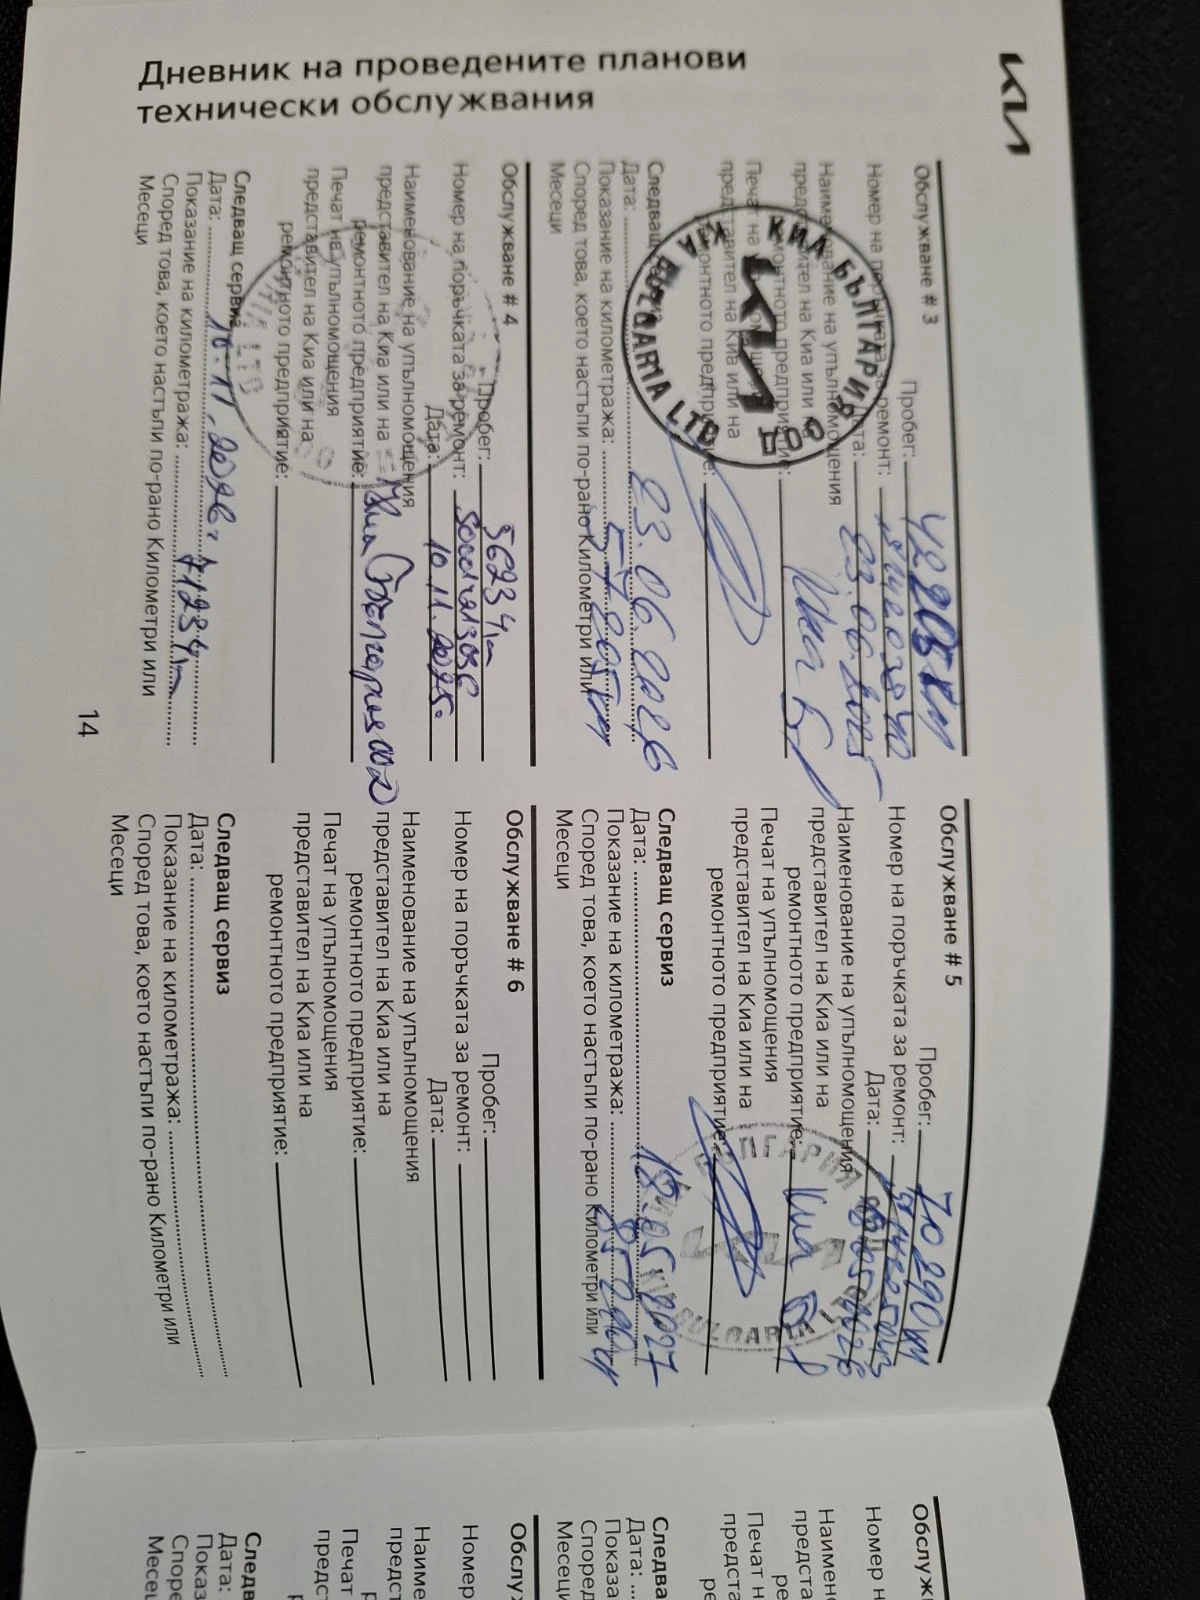 Дневник на проведените планови
технически обслужвания
KIA
Обслужване # 3
Пробег: 42205 km
Номер на поръчката за ремонт:
Дата: 23.06.2025
Наименование на упълномощения
представител на Киа или на
ремонтното предприятие: Киа
Печат на упълномощения
представител на Киа или на
ремонтното предприятие:
КИА БЪЛГАРИЯ ЕООД
KIA BULGARIA LTD
Следващ сервиз
Дата: 23.06.2026
Показание на километража: 57205 km
Според това, което настъпи по-рано Километри или
Месеци
Обслужване # 4
Пробег: 56234 km
Номер на поръчката за ремонт:
Дата: 10.11.2025г.
Наименование на упълномощения
представител на Киа или на
ремонтното предприятие: Киа България ООД
Печат на упълномощения
представител на Киа или на
ремонтното предприятие:
Следващ сервиз
Дата: 10.11.2026г.
Показание на километража: 71234 km
Според това, което настъпи по-рано Километри или
Месеци
14
Обслужване # 5
Пробег: 70290 km
Номер на поръчката за ремонт:
Дата: 18.05.2026
Наименование на упълномощения
представител на Киа или на
ремонтното предприятие: Киа
Печат на упълномощения
представител на Киа или на
ремонтното предприятие:
БЪЛГАРИЯ
KIA BULGARIA LTD
Следващ сервиз
Дата: 18.05.2027
Показание на километража: 85290 km
Според това, което настъпи по-рано Километри или
Месеци
Обслужване # 6
Пробег:
Номер на поръчката за ремонт:
Дата:
Наименование на упълномощения
представител на Киа или на
ремонтното предприятие:
Печат на упълномощения
представител на Киа или на
ремонтното предприятие:
Следващ сервиз
Дата:
Показание на километража:
Според това, което настъпи по-рано Километри или
Месеци